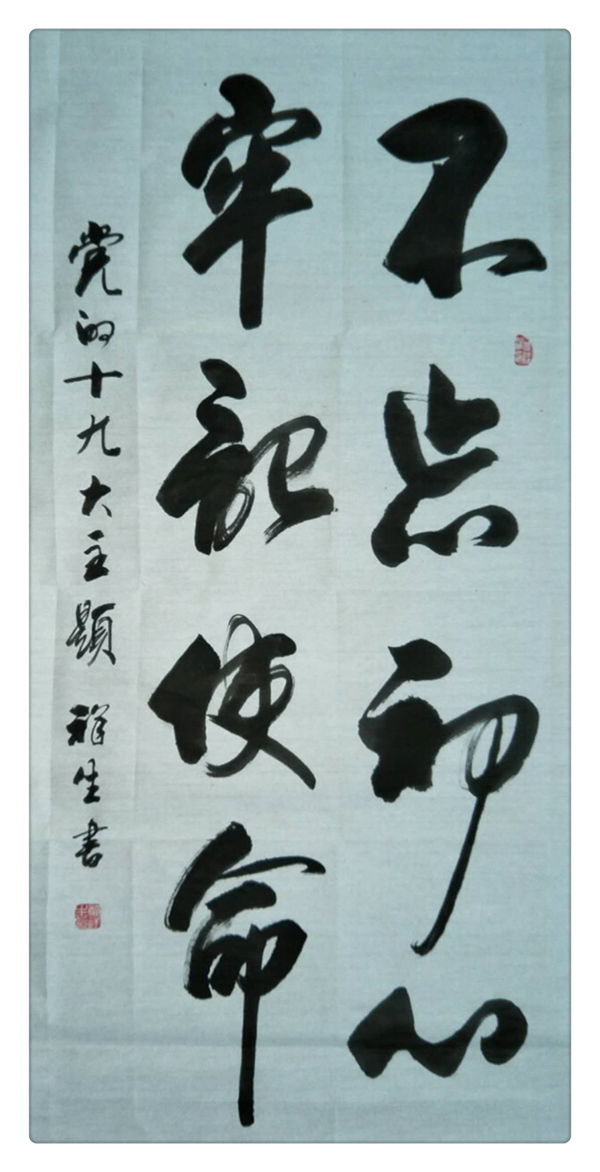 不忘初心
牢记使命
党的十九大主题 祥生书